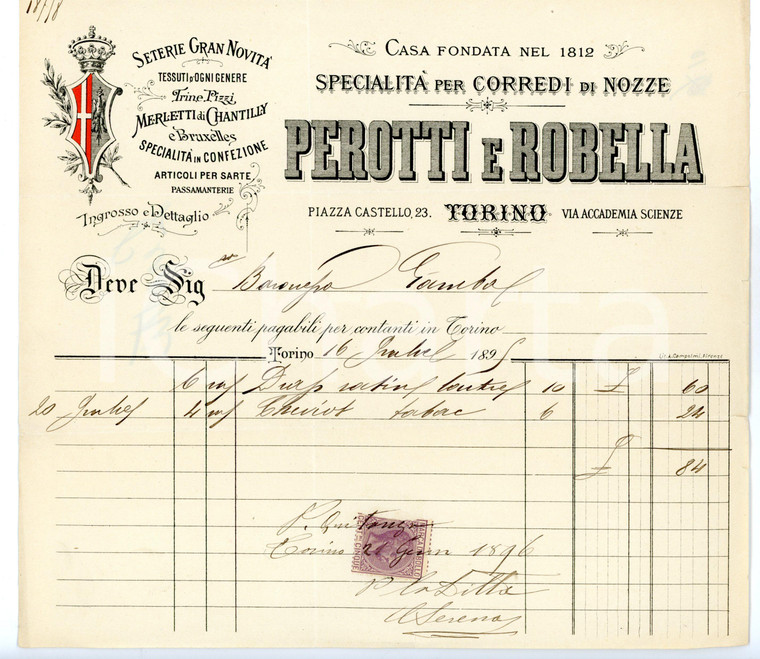 18778
SETERIE GRAN NOVITÀ
TESSUTI D'OGNI GENERE
Trine, Pizzi,
MERLETTI di CHANTILLY
e Bruxelles
SPECIALITÀ IN CONFEZIONE
ARTICOLI PER SARTE
PASSAMANTERIE
Ingrosso e Dettaglio
CASA FONDATA NEL 1812
SPECIALITÀ PER CORREDI DI NOZZE
PEROTTI E ROBELLA
PIAZZA CASTELLO, 23. TORINO VIA ACCADEMIA SCIENZE
Deve Sig ra Baronessa Gamba
le seguenti pagabili per contanti in Torino
Torino 16 1895
Lit. A. Campolmi, Firenze
6 m/ Drap 10 £ 60
20 4 m/ Cheviot tabac 6 24
£ 84
P. Quitanza
Torino 1896
P la Ditta